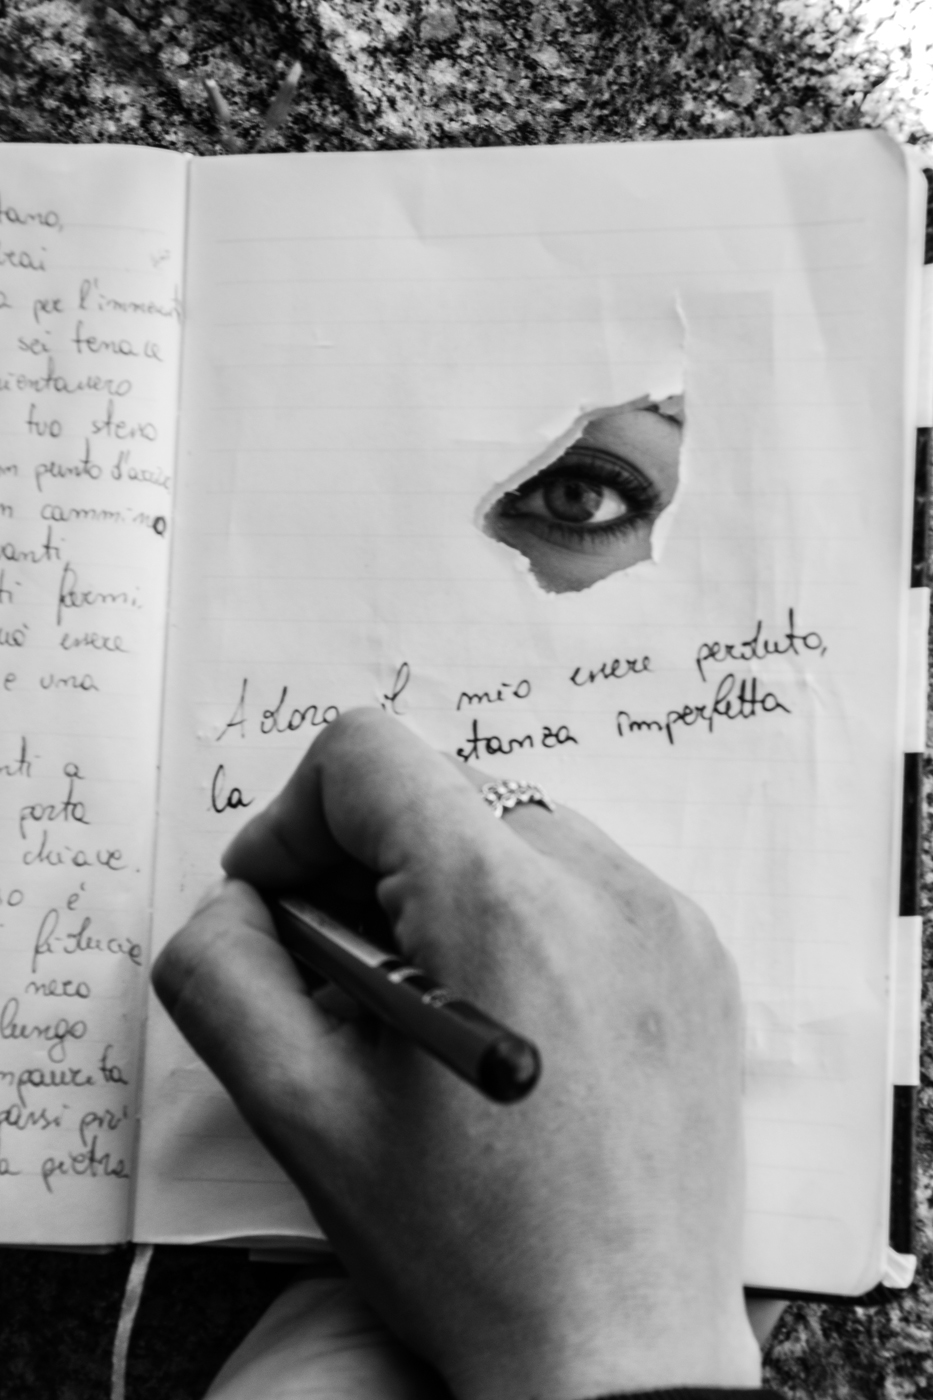 tano,
rai
a per l'immens
sei tenace
tuo stesso
punto d'arri
cammino
anti,
ti fermi.
può essere
e una
nti a
porta
chiave.
so é
fiducia
nero
lungo
mpaurita
passi più
a pietra
Adoro il mio essere perduto,
la stanza imperfetta